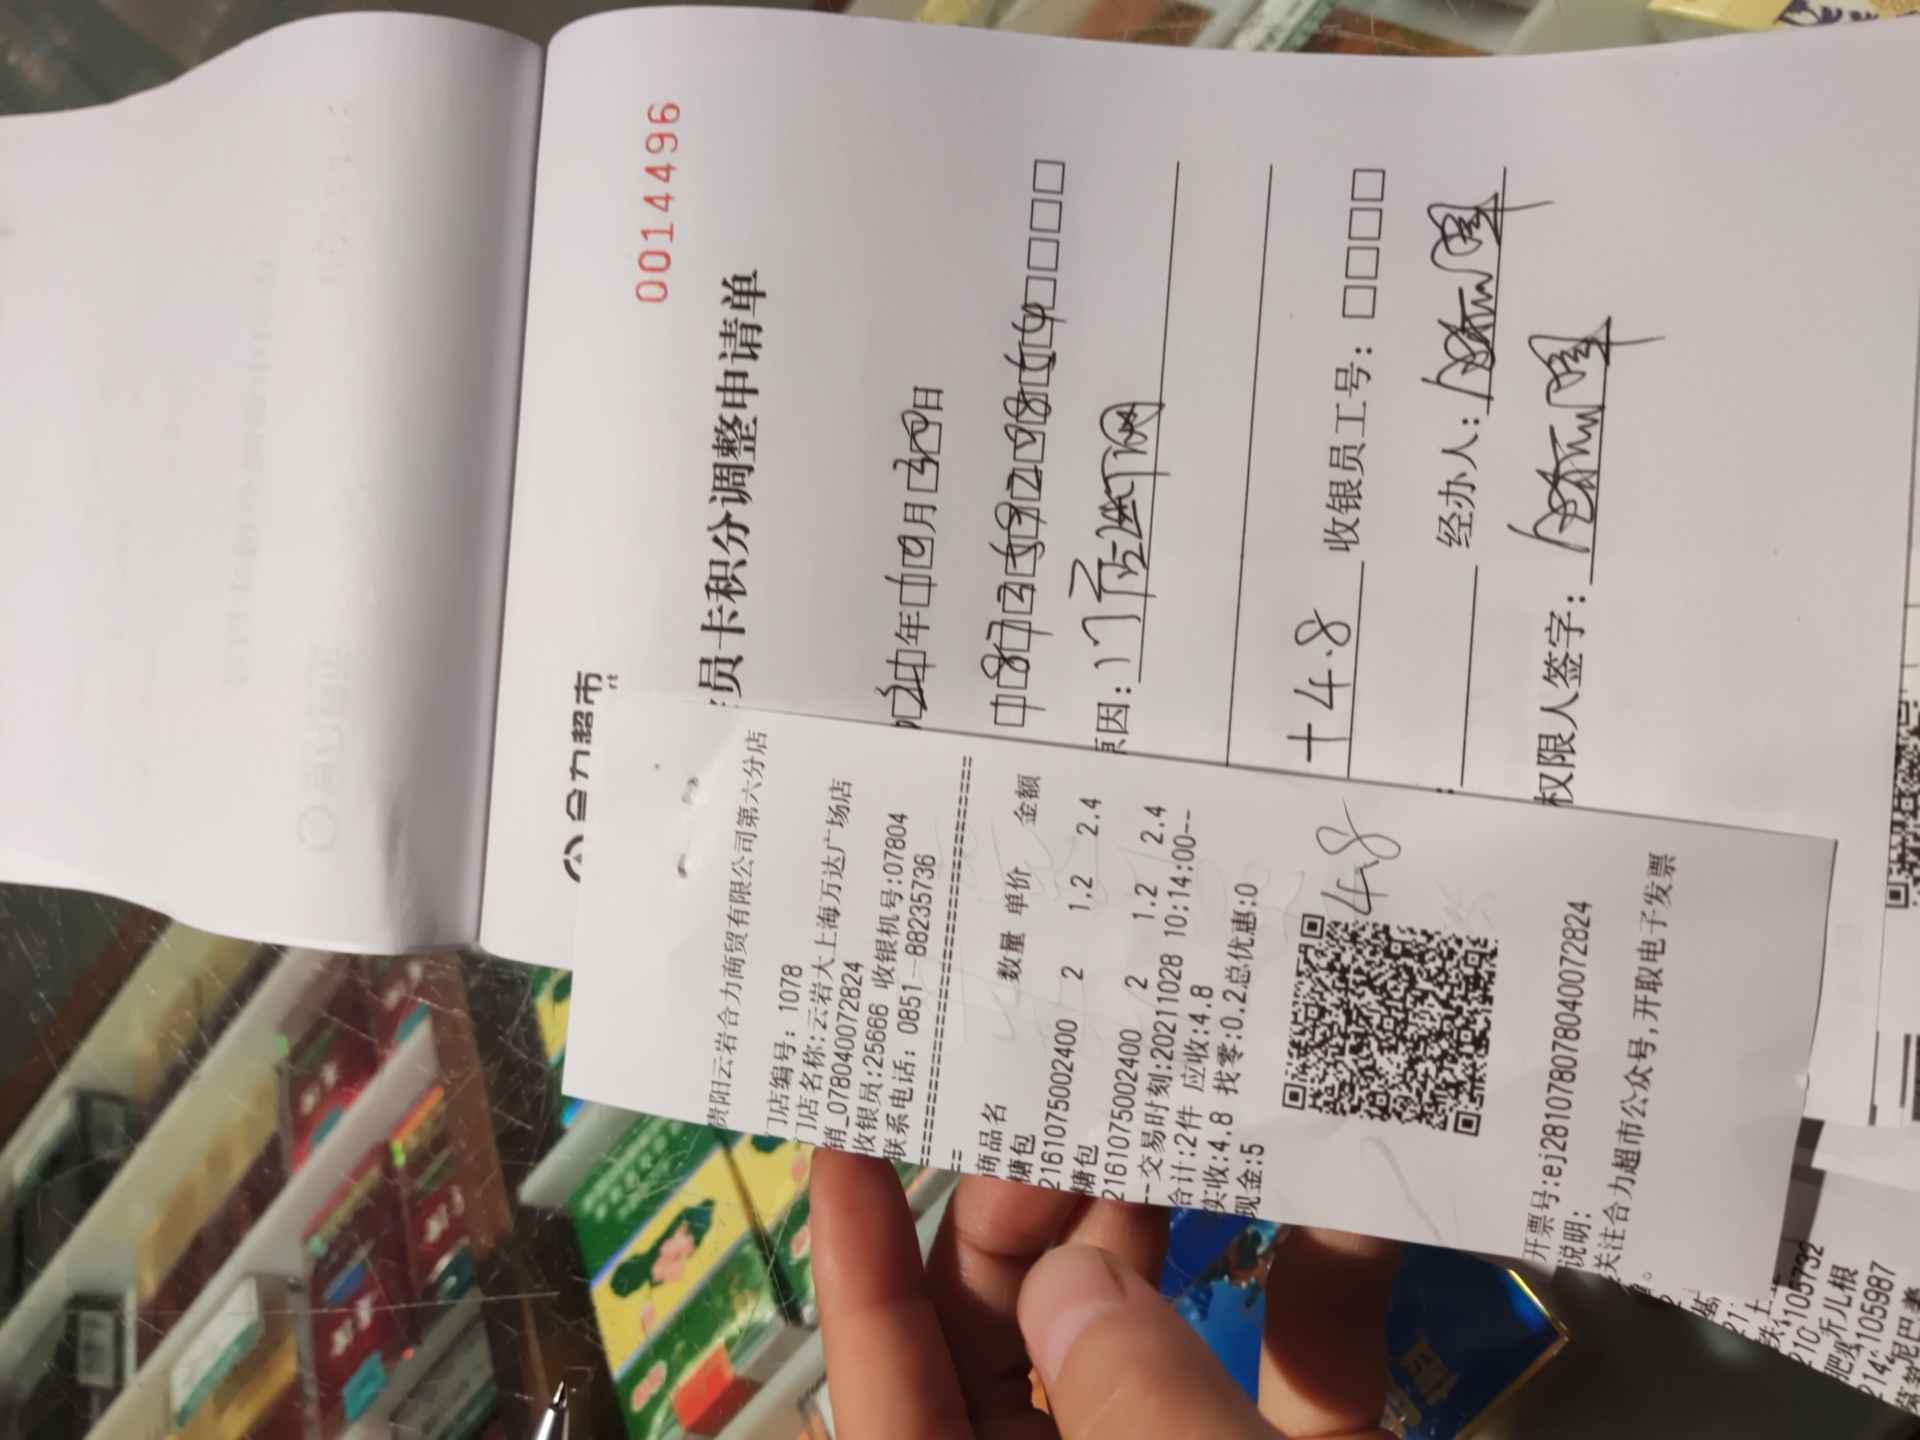 合力超市
0014496
员卡积分调整申请单
年 月 30日
原因: 门店断网
+4.8 收银员工号:
经办人:
权限人签字:
贵阳云岩合力商贸有限公司第六分店
门店编号: 1078
门店名称:云岩大上海万达广场店
销_078040072824
收银员:25666 收银机号:07804
联系电话: 0851--88235736
商品名 数量 单价 金额
糖包
2161075002400 2 1.2 2.4
糖包
2161075002400 2 1.2 2.4
--交易时刻:20211028 10:14:00--
合计:2件 应收:4.8
实收:4.8 找零:0.2总优惠:0
现金:5
4.8
开票号:ej281078078040072824
说明:
关注合力超市公众号,开取电子发票
。
105732
105987